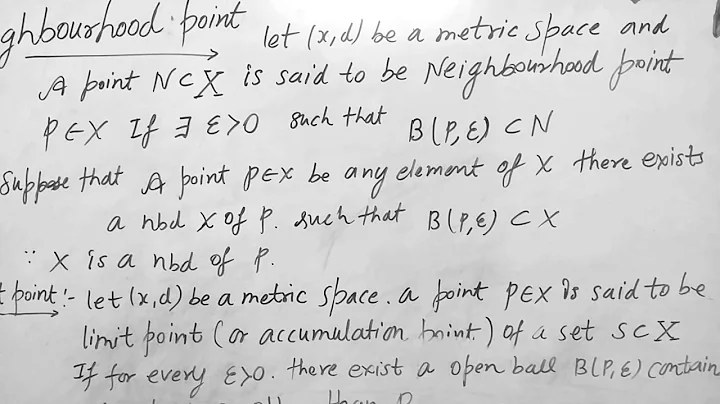 ghbourhood point
let (x,d) be a metric space and
A point N⊂X is said to be Neighbourhood point
P∈X If ∃ ε>0 such that B(P,ε) ⊂ N
Suppose that A point P∈X be any element of X there exists
a nbd X of P. such that B(P,ε) ⊂ X
∵ X is a nbd of P.
t point:- let (x,d) be a metric space. a point P∈X is said to be
limit point (or accumulation point) of a set S⊂X
If for every ε>0. there exist a open ball B(P,ε) contain
than P